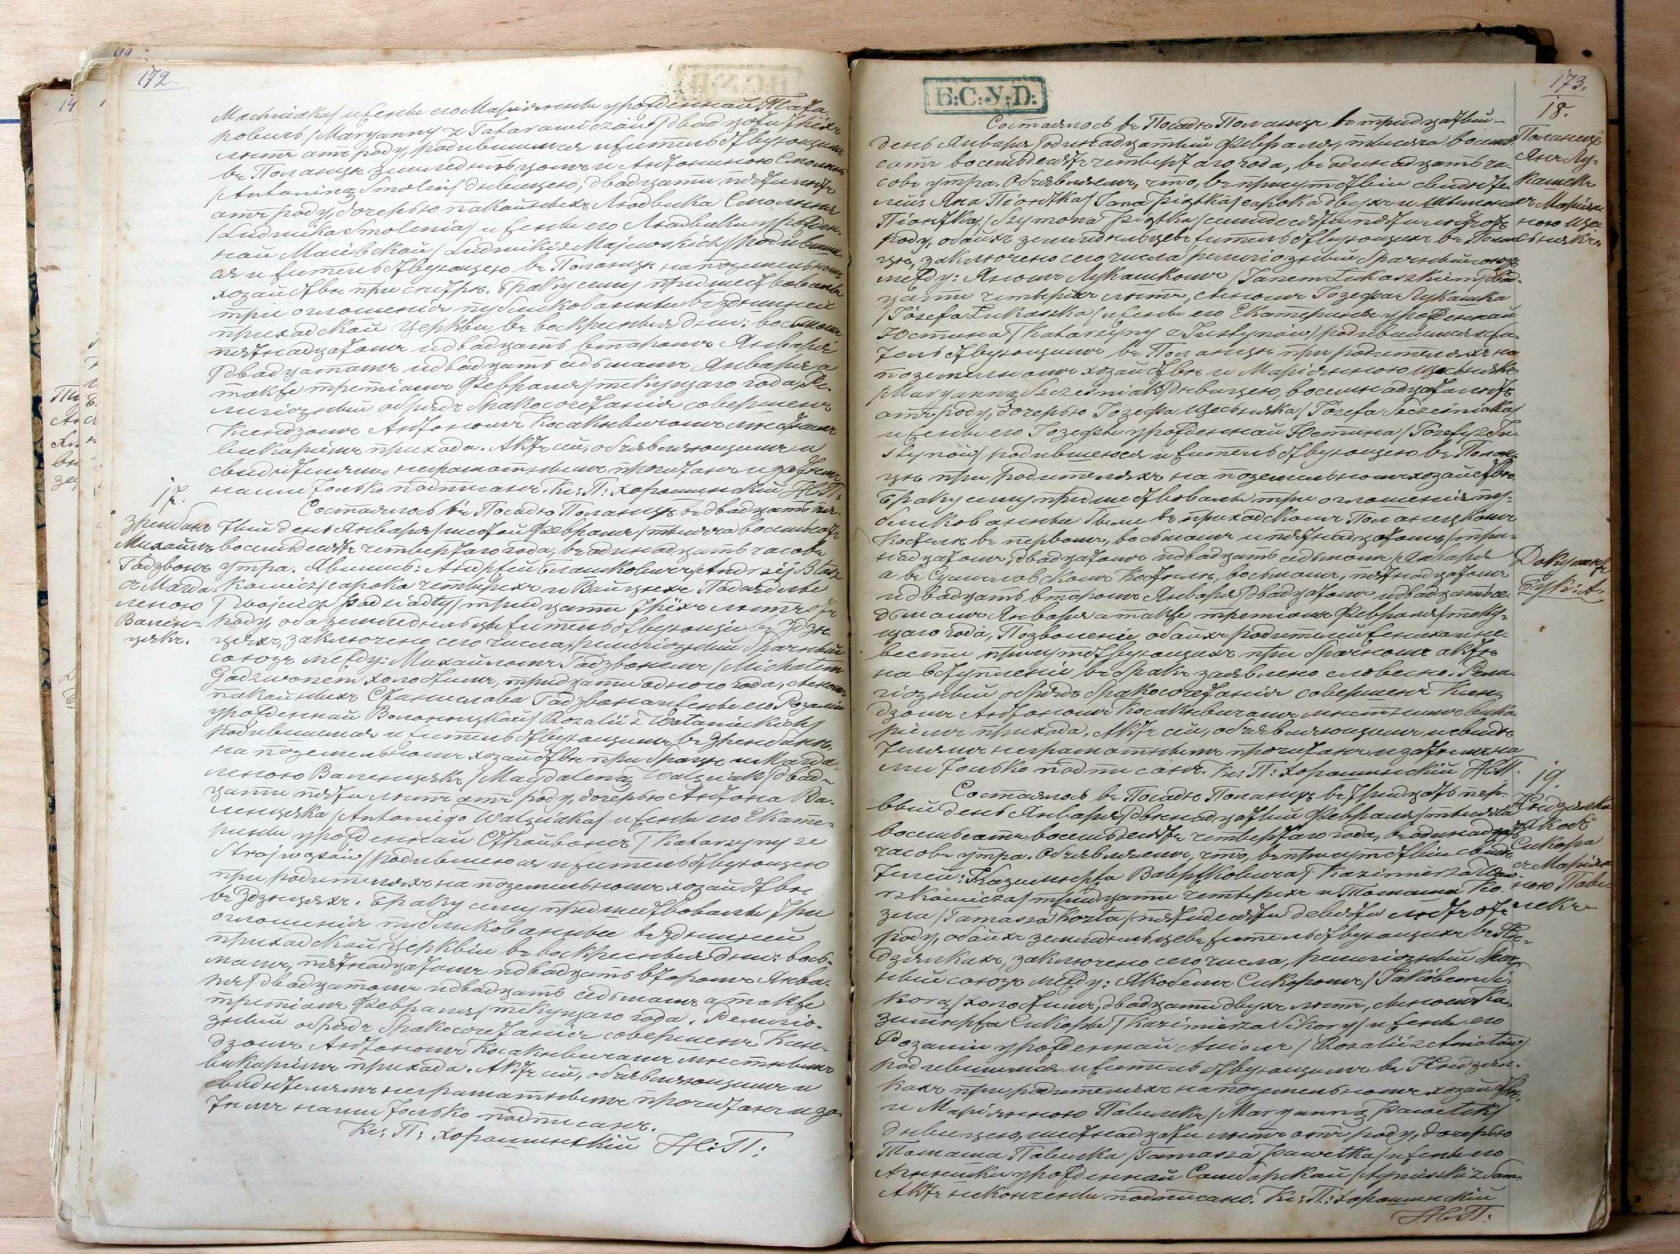 172.
Machniaka/ и жены его Маріянны урожденной Тата
ровичъ /Maryanny z Tatarowiczów/ двадцати трёхъ
лѣтъ отъ роду, родившимся и жительствующимъ
въ Поланцѣ земледѣльцомъ и Антониною Смолень
/Antoniną Smoleń/ дѣвицею, двадцати пяти лѣтъ
отъ роду, дочерью покойныхъ Людвика Смоленя
/Ludwika Smolenia/ и жены его Людвики урожден-
ной Маіевской /Ludwiki z Majewskich/ родивши-
ся и жительствующею въ Поланцѣ на поземельномъ
хозяйствѣ при сестрѣ. Браку сему предшествовали
три оглашенія публикованныя въ здѣшней
приходской церкви въ воскресныя дни: восьмомъ
пятнадцатомъ и двадцать второмъ Января
/двадцатомъ и двадцать седьмомъ Января, а
также третьемъ Февраля/ текущаго года. Ре-
лигіозный обрядъ бракосочетанія совершенъ
Ксендзомъ Антономъ Косакевичемъ мѣстнымъ
викаріемъ прихода. Актъ сей, объявляющимъ и
свидѣтелямъ неграмотнымъ прочитанъ и затѣмъ
нами только подписанъ. Кс: П: Хорошинскій Н:П:
17.
Зрембинъ
Михаилъ
Гадзвонъ
съ Магда-
леною
Вален-
цякъ.
Состоялось въ Посадѣ Поланцѣ въ двадцать пя-
тый день Января /шестой Февраля/ тысяча восемьсотъ
восемьдесятъ четвертаго года, въ одинадцать часовъ
утра. Явились: Андрей Блашкевичъ /Andrzej Błasz
kiewicz/ сорока четырехъ и Войцехъ Падяблы
/Wojciech Padiabły/ тридцати трёхъ лѣтъ отъ
роду, оба земледѣльцы жительствующіе въ Здзѣ-
цахъ, заключено сего числа, религіозный брачный
союзъ между: Михаиломъ Гадзвонемъ /Michałem
Gadzwonem/ холостымъ, тридцати одного года, сыномъ
покойныхъ Станислава Гадзвона и жены его Розаліи
урожденной Волоницкой /Rozalii z Wołonickich/
родившимся и жительствующимъ въ Зрембинѣ
на поземельномъ хозяйствѣ при братѣ и Магда-
леною Валенцякъ /Magdaleną Walęciak/ двад-
цати пяти лѣтъ отъ роду, дочерью Антона Ва-
ленцяка /Antoniego Walęciaka/ и жены его Екате-
рины урожденной Стройвонсъ /Katarzyny ze
Strojwąsów/ родившеюся и жительствующею
при родителяхъ на поземельномъ хозяйствѣ
въ Здзѣцахъ. Браку сему предшествовали три
оглашенія публикованныя въ здѣшней
приходской церкви въ воскресныя дни: вось-
момъ, пятнадцатомъ и двадцать второмъ Янва-
ря /двадцатомъ и двадцать седьмомъ, а также
третьемъ Февраля/ текущаго года. Религіо-
зный обрядъ бракосочетанія совершенъ Ксен-
дзомъ Антономъ Косакевичемъ мѣстнымъ
викаріемъ прихода. Актъ сей, объявляющимъ и
свидѣтелямъ неграмотнымъ прочитанъ и за-
тѣмъ нами только подписанъ.
Кс: П: Хорошинскій Н:П:
Б:С:У:D:
173.
18.
Поланецъ
Янъ Лу-
кашекъ
съ Маріян-
ною Щес-
някъ
Состоялось въ Посадѣ Поланцѣ въ тридцатый
день Января /одинадцатый Февраля/ тысяча восемь
сотъ восемьдесятъ четвертаго года, въ одинадцать ча-
совъ утра. Объявляемъ, что, въ присутствіи свидѣте-
лей Яна Піонтка /Jana Piątka/ сорока двухъ и Шимона
Піонтка /Szymona Piątka/ семидесяти пяти лѣтъ отъ
роду, обоихъ земледѣльцевъ жительствующихъ въ Полан-
цѣ, заключено сего числа религіозный брачный союзъ
между: Яномъ Лукашкомъ /Janem Łukaszkiem/ двад-
цати четырёхъ лѣтъ, сыномъ Іозефа Лукашка
/Józefa Łukaszka/ и жены его Екатерины урожденной
Юстына /Katarzyny z Justynów/ родившимся и жи-
тельствующимъ въ Поланцѣ при родителяхъ на
поземельномъ хозяйствѣ и Маріянною Щеснякъ
/Maryanną Szcześniak/ дѣвицею, восемнадцати лѣтъ
отъ роду, дочерью Іозефа Щесняка /Józefa Szcześniaka/
и жены его Іозефы урожденной Юстына /Józefy z Ju-
stynów/ родившеюся и жительствующею въ Полан-
цѣ при родителяхъ на поземельномъ хозяйствѣ.
Браку сему предшествовали три оглашенія пу-
бликованныя были въ приходскомъ Поланецкомъ
Костелѣ въ первомъ, восьмомъ и пятнадцатомъ /три-
надцатомъ, двадцатомъ и двадцать седьмомъ/ Января
а въ Сулиславскомъ Костелѣ, восьмомъ, пятнадцатомъ
и двадцать второмъ Января /двадцатомъ и двадцать се-
дьмомъ Января а также третьемъ Февраля/ теку-
щаго года. Позволеніе, обоихъ родителей жениха и не-
вѣсты присутствующихъ при брачномъ актѣ
на вступленіе въ бракъ заявлено словесно. Рели-
гіозный обрядъ бракосочетанія совершенъ Ксен-
дзомъ Антономъ Косакевичемъ мѣстнымъ вика-
ріемъ прихода. Актъ сей, объявляющимъ и свидѣ-
телямъ неграмотнымъ прочитанъ и затѣмъ на-
ми только подписанъ. Кс: П: Хорошинскій Н:П:
19
Сикора
съ Маріян-
ною Паве-
лекъ
Состоялось въ Посадѣ Поланцѣ въ тридцать пер-
вый день Января /двѣнадцатый Февраля/ тысяча
восемьсотъ восемьдесятъ четвертаго года, въ одинадцать
часовъ утра. Объявляемъ, что, въ присутствіи свидѣ-
телей: Казимержа Вавржковича /Kazimierza Waw-
rzkowicza/ тридцати четырехъ и Томаша Ко-
зла /Tomasza Kozła/ пятидесяти девяти лѣтъ отъ
роду, обоихъ земледѣльцевъ жительствующихъ въ
заключено сего числа, религіозный брач-
ный союзъ между: Якобомъ Сикорою /Jakóbem Si-
korą/ холостымъ, двадцати двухъ лѣтъ, сыномъ Ка-
зимержа Сикоры /Kazimierza Sikory/ и жены его
Розаліи урожденной Аніолъ /Rozalii z Aniołów/
родившимся и жительствующимъ въ
кахъ при родителяхъ на поземельномъ хозяйствѣ
и Маріянною Павелекъ /Maryanną Pawełek/
дѣвицею, шестнадцати лѣтъ отъ роду, дочерью
Томаша Павелка /Tomasza Pawełka/ и жены его
Агнешки урожденной
Актъ неконченъ подписано. Кс: П: Хорошинскій
Н:П: